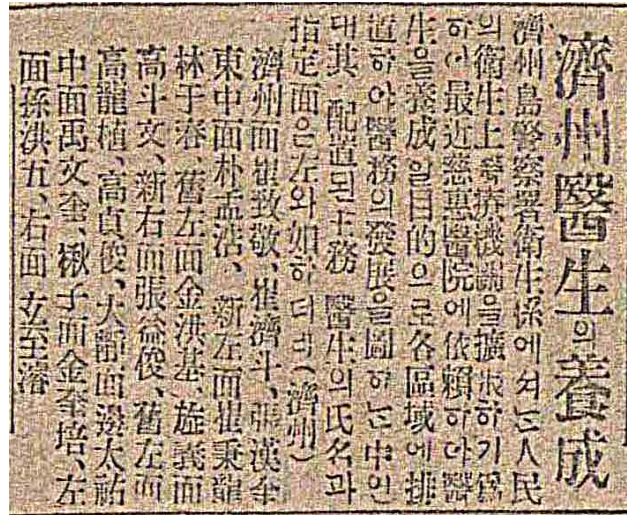 濟州醫生의養成
濟州島警察署衛生係에셔는人民
의衛生上醫療機關을擴張하기爲
하야最近慈惠醫院에依賴하야醫
生을養成할目的으로各區域에排
置하야醫務의發展을圖하는中인
대其配置된 醫生의氏名과
指定面은左와如하더라(濟州)
濟州面崔致敬、崔濟斗、張漢奎
東中面朴孟浩、新左面崔秉龍
林于春、舊左面金洪基、旌義面
高斗文、新右面張益俊、舊左面
高龍植、高貞俊、大靜面邊太祐
中面禹文奎、楸子面金奎培、左
面孫洪五、右面 至濬